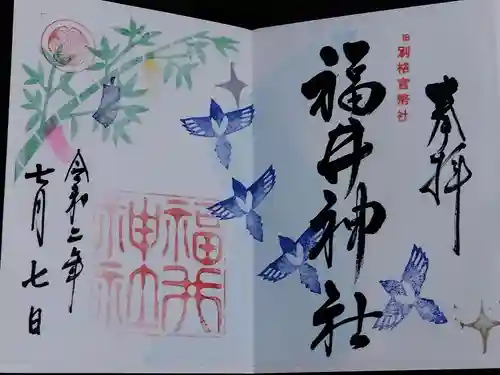 奉拝
旧別格官幣社
福井神社
令和二年
七月七日
福井
神社